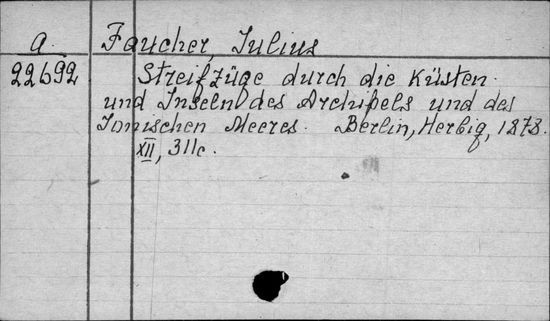 a. Faucher, Julius
22692 Streifzüge durch die Küsten
und Inseln des Archipels und des
Ionischen Meeres. Berlin, Herbig, 1878.
XII, 311c.